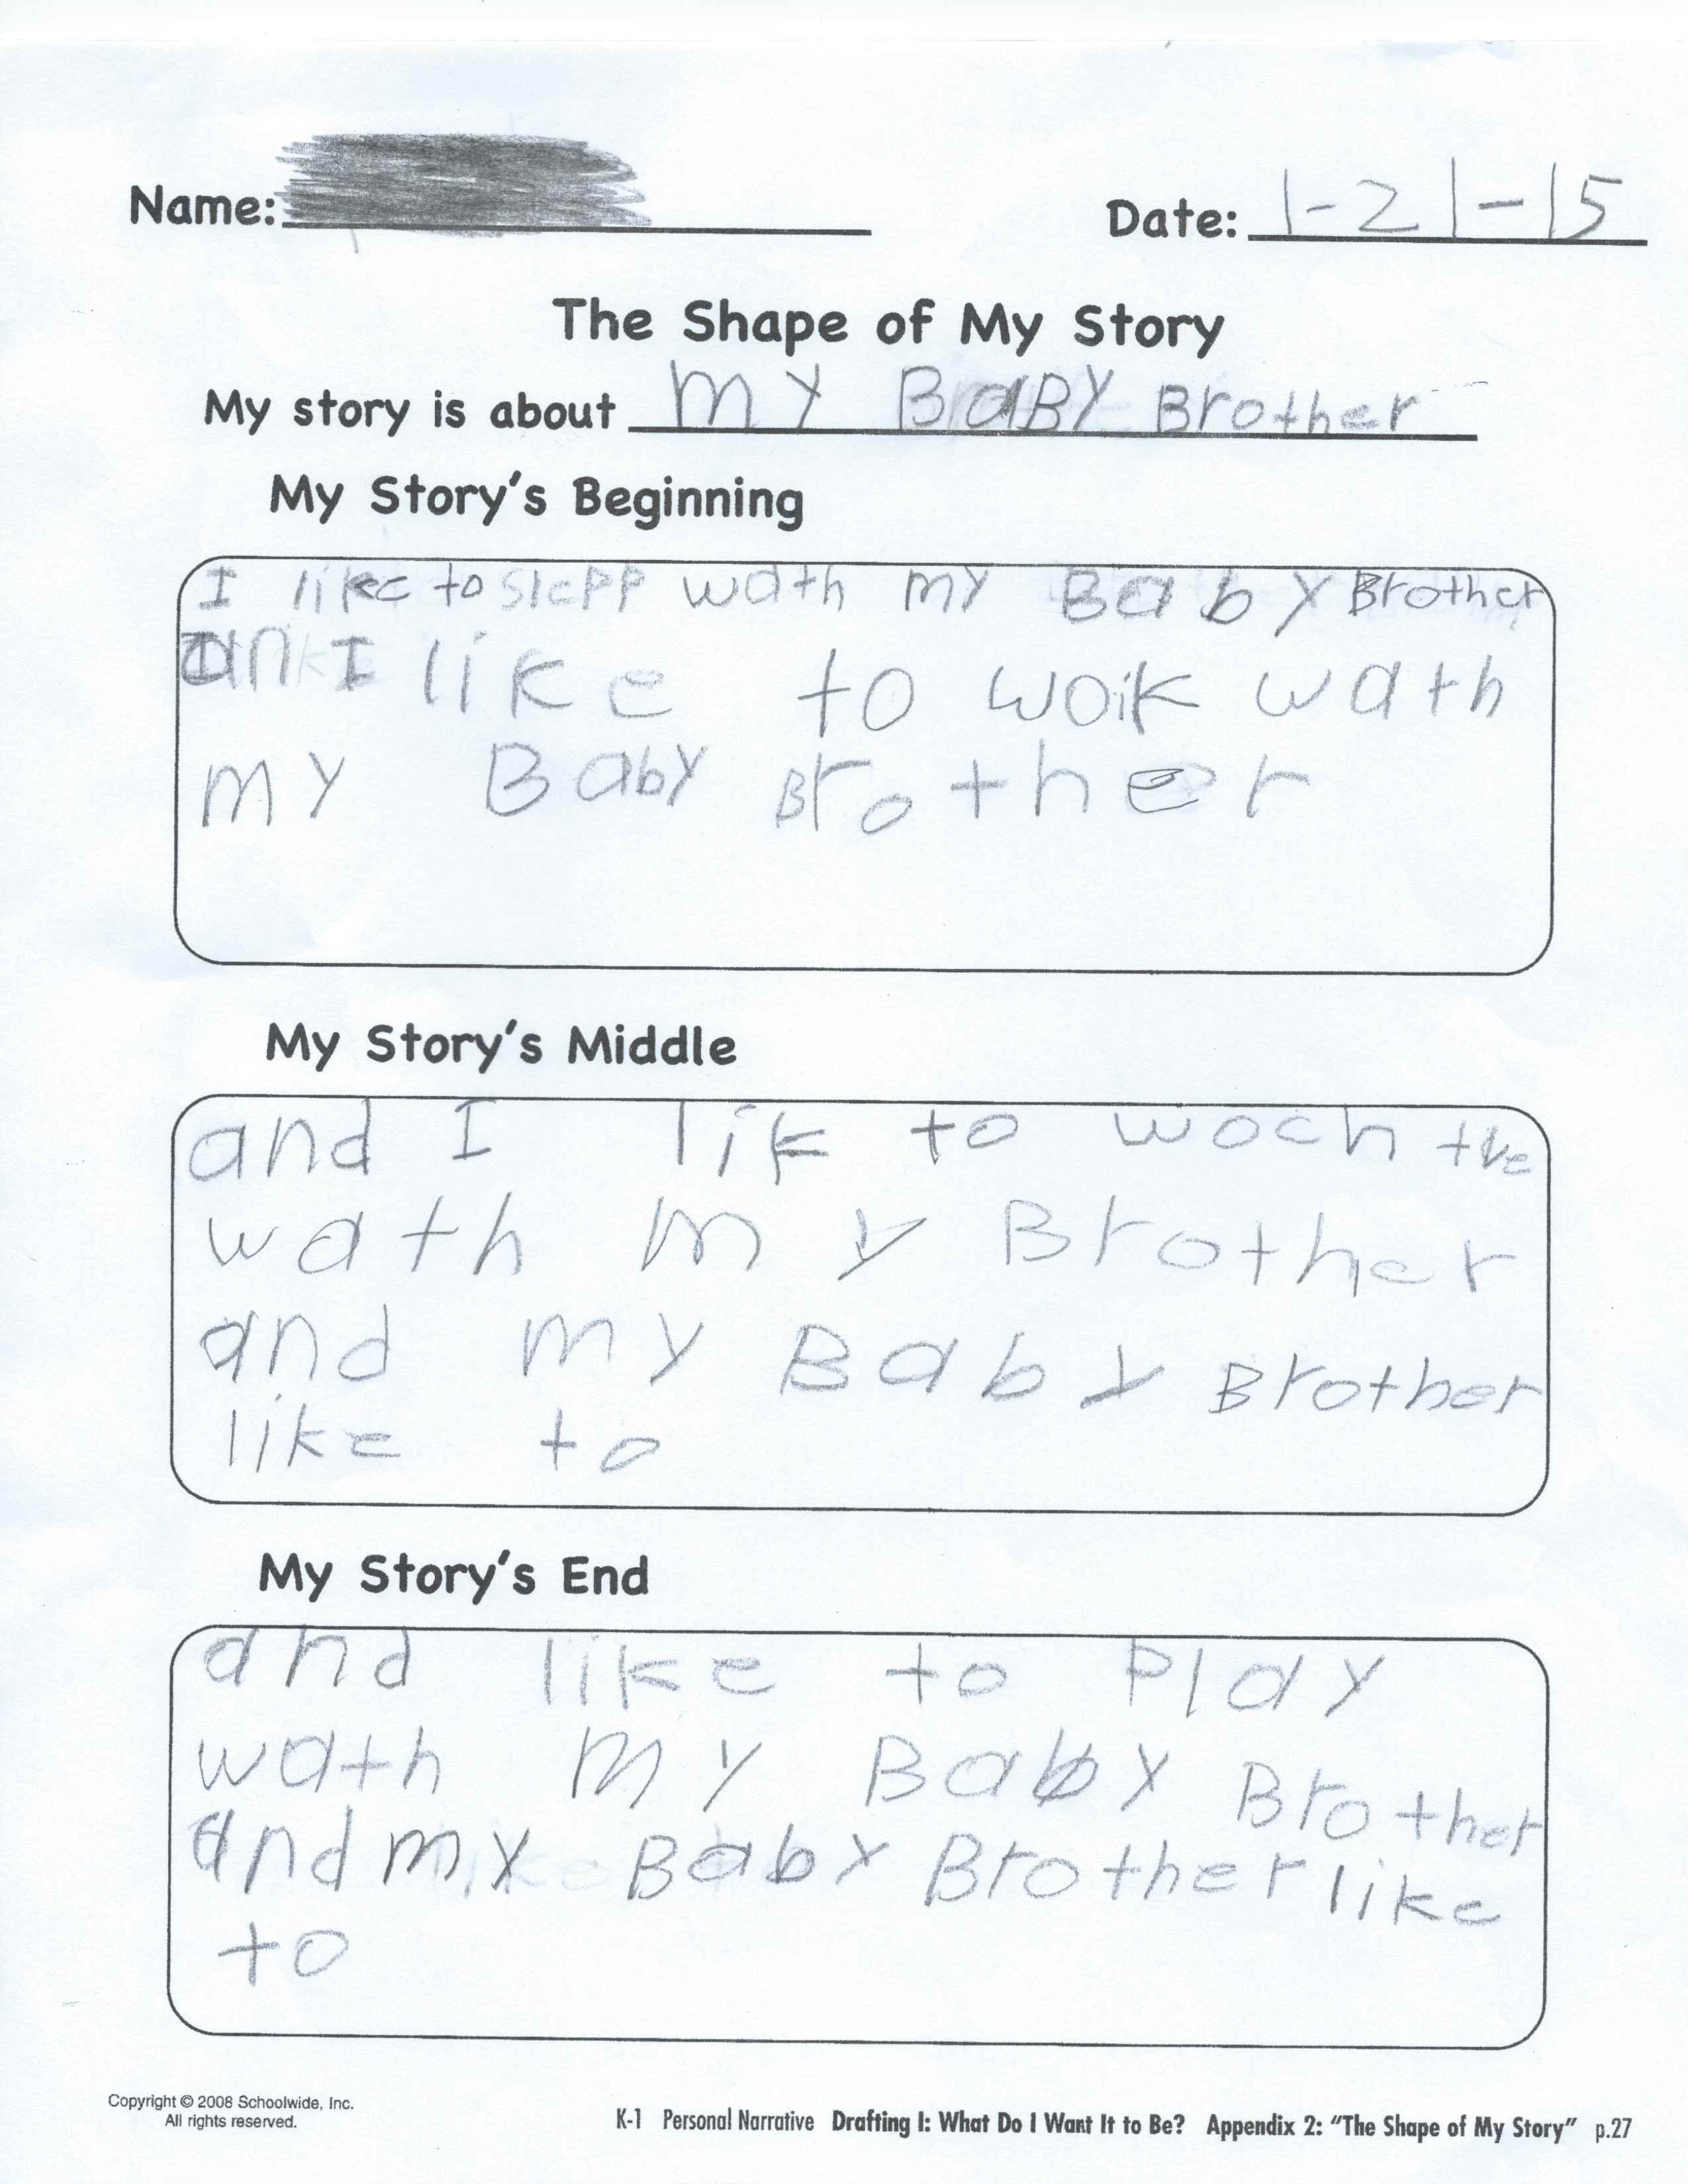 Name:
Date: 1-21-15
The Shape of My Story
My story is about my BaBY Brother
My Story's Beginning
I like to slepp wath my Baby Brother
an I like to woik wath
my Baby Brother
My Story's Middle
and I lik to woch the
wath my Brother
and my Baby Brother
like to
My Story's End
and like to Play
wath my Baby Brother
and my Baby Brother like
to
Copyright © 2008 Schoolwide, Inc.
All rights reserved.
K-1 Personal Narrative Drafting I: What Do I Want It to Be? Appendix 2: "The Shape of My Story" p.27